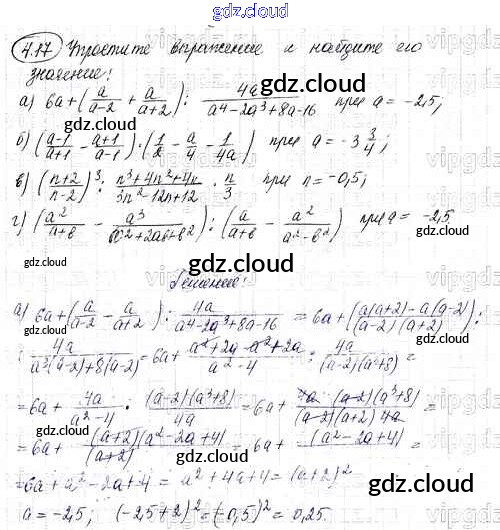 gdz.cloud
4.17 Упростите выражение и найдите его
значение:
gdz.cloud
а) 6a+(a/(a-2) + a/(a+2)) : 4a/(a⁴-2a³+8a-16) при a = -2,5;
б) ((a-1)/(a+1) - (a+1)/(a-1))·(1/2 - a/4 - 1/(4a)) при a = -3 3/4;
в) ((n+2)/(n-2))³ : (n³+4n²+4n)/(3n²-12n+12) · n/3 при n = -0,5;
г) (a²/(a+b) - a³/(a²+2ab+b²)) : (a/(a+b) - a²/(a²-b²)) при a = -2,5
gdz.cloud gdz.cloud
gdz.cloud
Решение:
а) 6a+(a/(a-2) - a/(a+2)) : 4a/(a⁴-2a³+8a-16) = 6a+((a(a+2)-a(a-2))/((a-2)(a+2))) :
: 4a/(a³(a-2)+8(a-2)) = 6a+ (a²+2a-a²+2a)/(a²-4) : 4a/((a-2)(a³+8)) =
=6a+ 4a/(a²-4) · ((a-2)(a³+8))/4a = 6a+ (4a (a-2)(a³+8))/((a-2)(a+2) 4a) =
=6a+ ((a+2)(a²-2a+4))/(a+2) = 6a+ (a²-2a+4) =
gdz.cloud
=6a+a²-2a+4 = a²+4a+4 = (a+2)²
gdz.cloud
a = -2,5; (-2,5+2)² = (-0,5)² = 0,25.
gdz.cloud